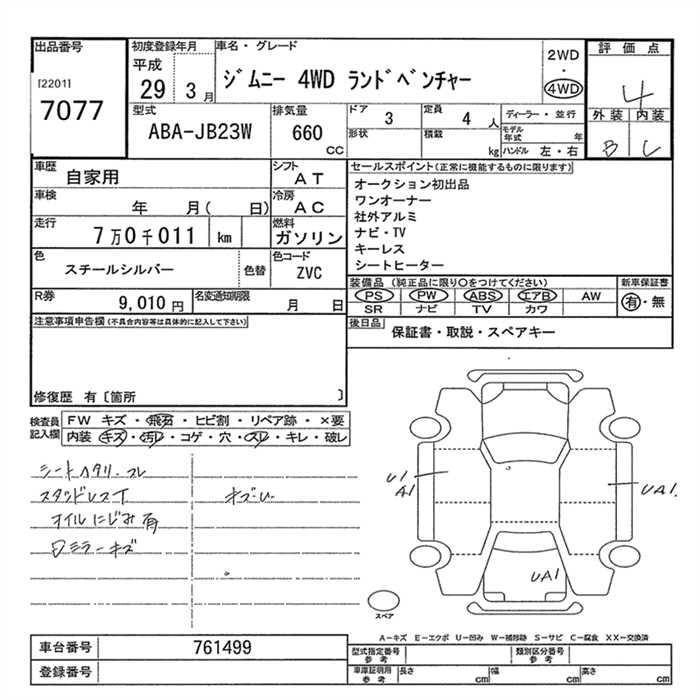 出品番号
[2201]
7077
初度登録年月
平成
29 3月
車名・グレード
ジムニー 4WD ランドベンチャー
2WD
・
4WD
評価点
4
外装 内装
B C
型式
ABA-JB23W
排気量
660
cc
ドア
3
定員
4 人
ディーラー・並行
形状
積載
kg
モデル年式
年
ハンドル 左・右
車歴
自家用
シフト
AT
車検
年 月( 日)
冷房
AC
走行
7万0千011 km
燃料
ガソリン
色
スチールシルバー
色替
色コード
ZVC
R券
9,010 円
名変通知期限
月 日
セールスポイント(正常に機能するものに限ります)
オークション初出品
ワンオーナー
社外アルミ
ナビ・TV
キーレス
シートヒーター
装備品 (純正品に限り○をつけてください)
新車保証書
PS PW ABS エアB AW
有・無
SR ナビ TV カワ
後日品
保証書・取説・スペアキー
注意事項申告欄(不具合内容等は具体的に記入して下さい)
修復歴 有〔箇所 〕
検査員記入欄
FW キズ・飛石・ヒビ割・リペア跡・×要
内装・キズ・汚レ・コゲ・穴・スレ・キレ・破レ
シートヘタリ・スレ
スタッドレスT キズ・ひ
オイルにじみ有
ミラーキズ
U1
A1
UA1
UA1
スペア
A-キズ E-エクボ U-凹み W-補修跡 S-サビ C-腐食 XX-交換済
車台番号
761499
登録番号
型式指定番号
参考
類別区分番号
参考
車庫証明用
参考
長さ cm 幅 cm 高さ cm